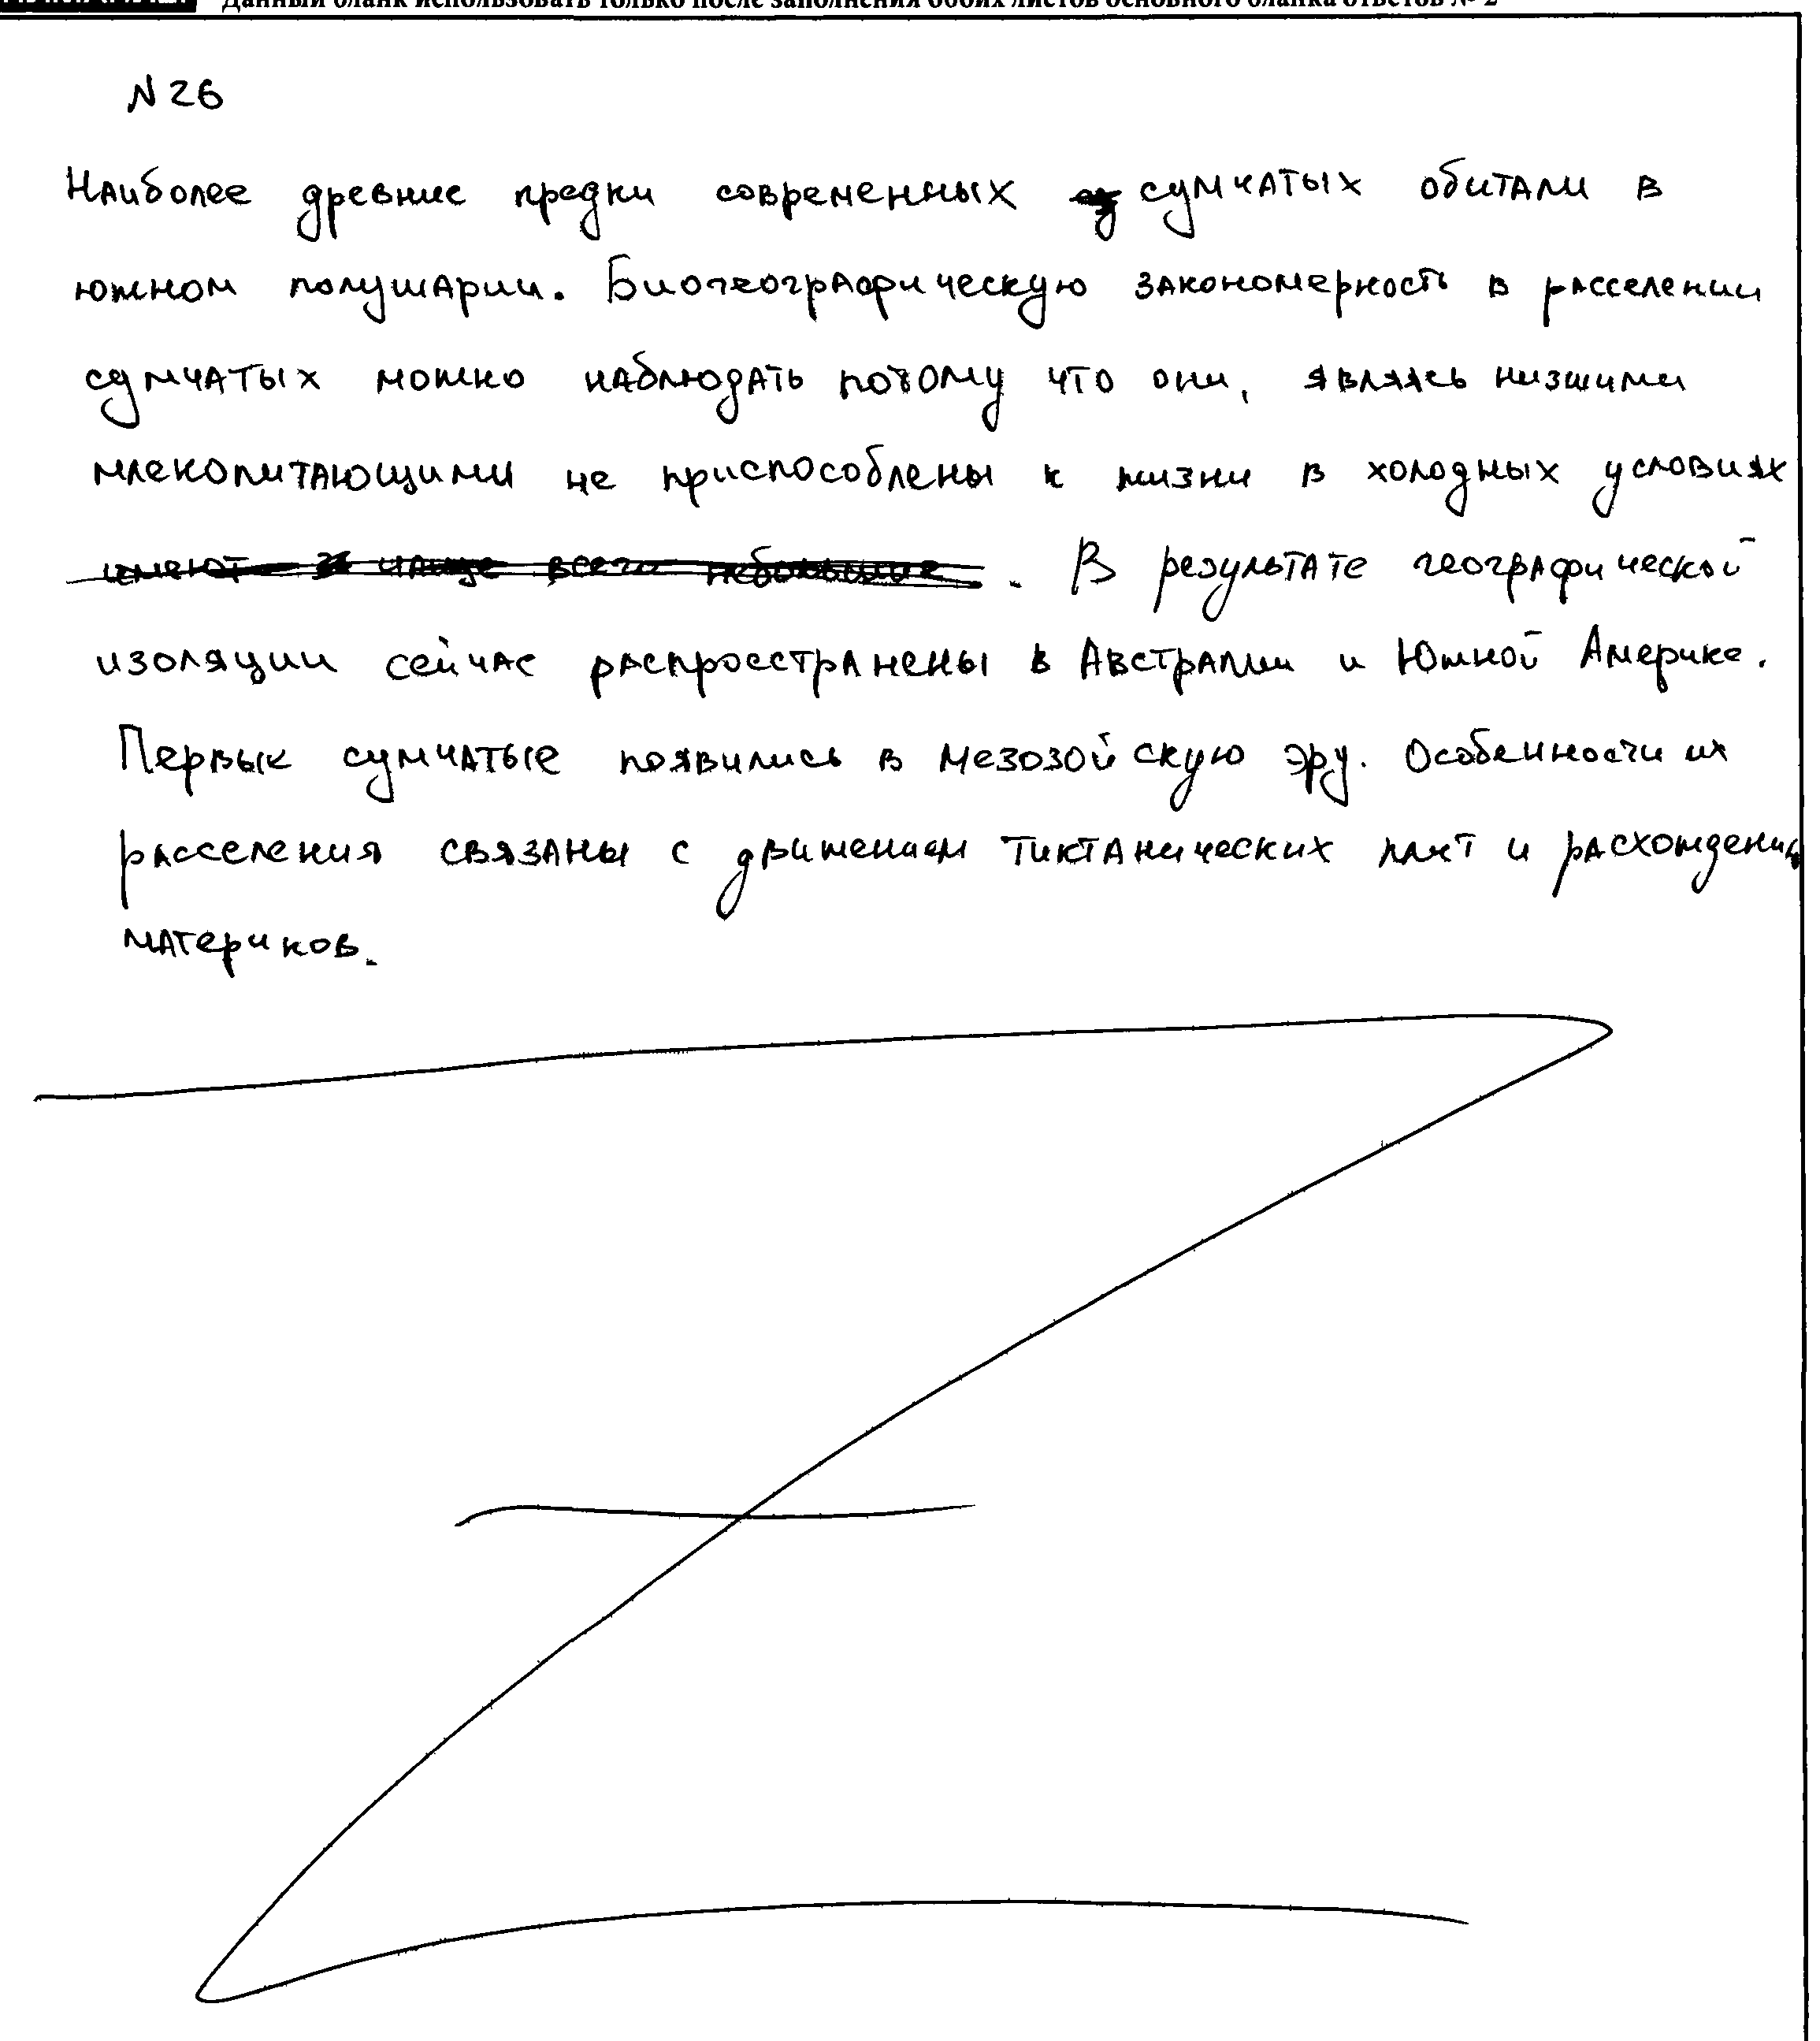 Данный бланк использовать только после заполнения обоих листов основного бланка ответов № 2
N 26
Наиболее древние предки современных сумчатых обитали в
южном полушарии. Биогеографическую закономерность в расселении
сумчатых можно наблюдать потому что они, являясь низшими
млекопитающими не приспособлены к жизни в холодных условиях
имеют чаще всего небольшие . В результате географической
изоляции сейчас распросстранены в Австралии и Южной Америке.
Первые сумчатые появились в мезозойскую эру. Особенности их
расселения связаны с движением тиктанических плит и расхождения
материков.